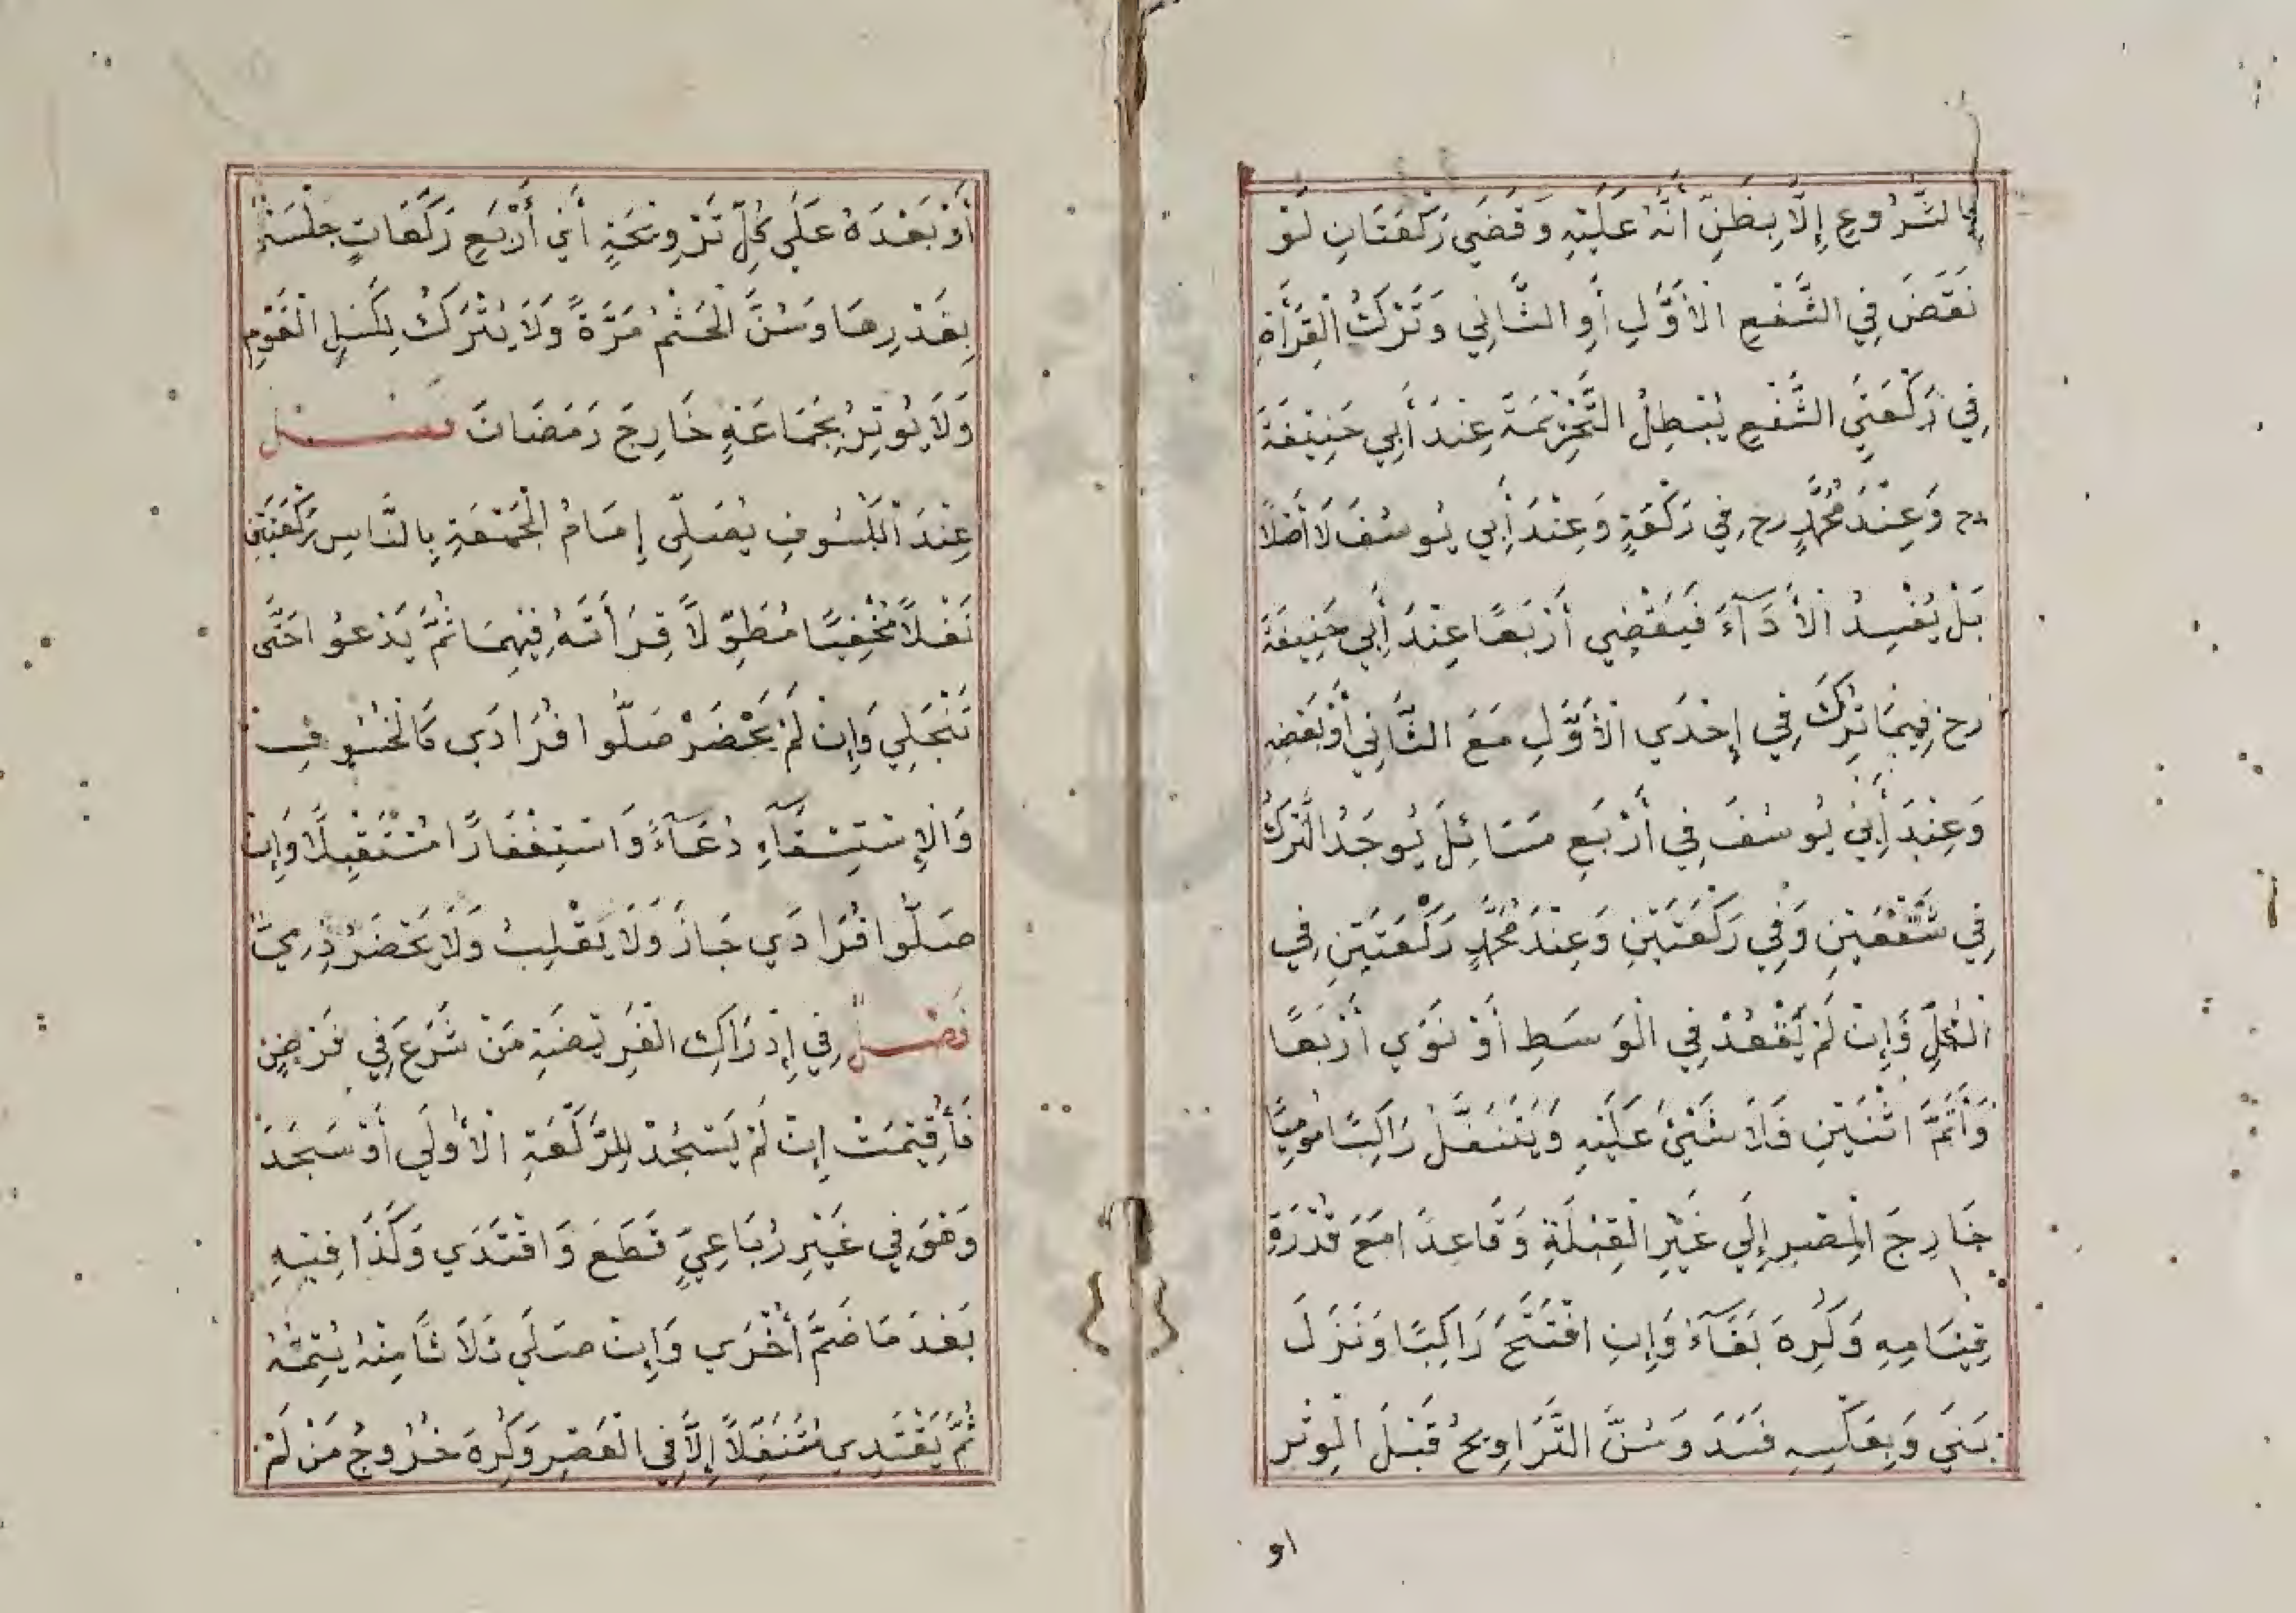 بِالشُّرُوعِ إِلَّا بِظَنِّ أَنَّهُ عَلَيْهِ وَقَضَي رَكْعَتَانِ لَوْ
نَقَضَ فِي الشَّفْعِ الْأَوَّلِ أَوِ الثَّانِي وَتَرْكُ الْقِرَأَةِ
فِي رَكْعَتَيِ الشَّفْعِ يُبْطِلُ التَّحْرِيْمَةَ عِنْدَ أَبِي حَنِيْفَةَ
رح وَعِنْدَ مُحَمَّدٍ رح فِي رَكْعَةٍ وَعِنْدَ أَبِي يُوسُفَ لَا أَصْلًا
بَلْ يُفْسِدُ الْأَدَآءَ فَيَقْضِي أَرْبَعًا عِنْدَ أَبِي حَنِيفَةَ
رح فِيمَا تَرَكَ فِي إِحْدَي الْأَوَّلِ مَعَ الثَّانِي أَوْ بَعْضِهِ
وَعِنْدَ أَبِيْ يُوسُفَ فِي أَرْبَعِ مَسَائِلَ يُوجَدُ التَّرْكُ
فِي شَّفْعَيْنِ وَفِي رَكْعَتَيْنِ وَعِنْدَ مُحَمَّدٍ رَكْعَتَيْنِ فِي
الْكُلِّ وَإِنْ لَمْ يَقْعُدْ فِي الْوَسَطِ أَوْ نَوَي أَرْبَعًا
وَأَتَمَّ اثْنَيْنِ فَلَا شَيْئَ عَلَيْهِ وَيَتَنَفَّلُ رَاكِبًا مُومِيًا
خَارِجَ الْمِصْرِ إِلَي غَيْرِ الْقِبْلَةِ وَقَاعِدًا مَعَ قُدْرَةِ
قِيَامِهِ وَكُرِهَ بَقَآءً وَإِنِ افْتَتَحَ رَاكِبًا وَنَزَلَ
بَنَي وَبِعَكْسِهِ فَسَدَ وَسُنَّ التَّرَاوِيحُ قَبْلَ الْوِتْرِ
او
أَوْ بَعْدَهُ عَلَي كُلِّ تَرْوِيْحَةٍ أَيْ أَرْبَعِ رَكَعَاتٍ جَلْسَةٌ
بِقَدْرِهَا وَسُنَّ الْخَتْمُ مَرَّةً وَلَا يُتْرَكُ لِكَسَلِ الْقَوْمِ
وَلَا يُوتِرُ بِجَمَاعَةٍ خَارِجَ رَمَضَانَ فصل
عِنْدَ الْكُسُوفِ يُصَلِّى إِمَامُ الْجُمْعَةِ بِالنَّاسِ رَكْعَتَيْنِ
نَفْلًا مُخْفِيًا مُطَوِّلًا قِرَأَتَهُ فِيْهِمَا ثُمَّ يَدْعُوا حَتَّى
تَنْجَلِي وَإِنْ لَمْ يَحْضُرْ صَلَّوا فُرَادَي كَالْخُسُوفِ
وَالْإِسْتِسْقَآءِ دُعَآءً وَاسْتِغْفَارًا مُسْتَقْبِلًا وَإِنْ
صَلَّوا فُرَادَي جَازَ وَلَا يَقْلِبُ وَلَا يَحْضُرُ ذِمِّيٌّ
فَصْلٌ فِي إِدْرَاكِ الْفَرِيْضَةِ مَنْ شَرَعَ فِي فَرْضٍ
فَأُقِيْمَتْ إِنْ لَمْ يَسْجُدْ لِلرَّكْعَةِ الْأُولَي أَوْ سَجَدَ
وَهُوَ فِي غَيْرِ رُبَاعِيٍّ قَطَعَ وَاقْتَدَي وَكَذَا فِيْهِ
بَعْدَ مَا ضَمَّ أُخْرَي وَإِنْ صَلَّي ثَلَاثًا مِنْهُ يُتِمُّهُ
ثُمَّ يَقْتَدِي مُتَنَفِّلًا إِلَّا فِي الْعَصْرِ وَكُرِهَ خُرُوجُ مَنْ لَمْ